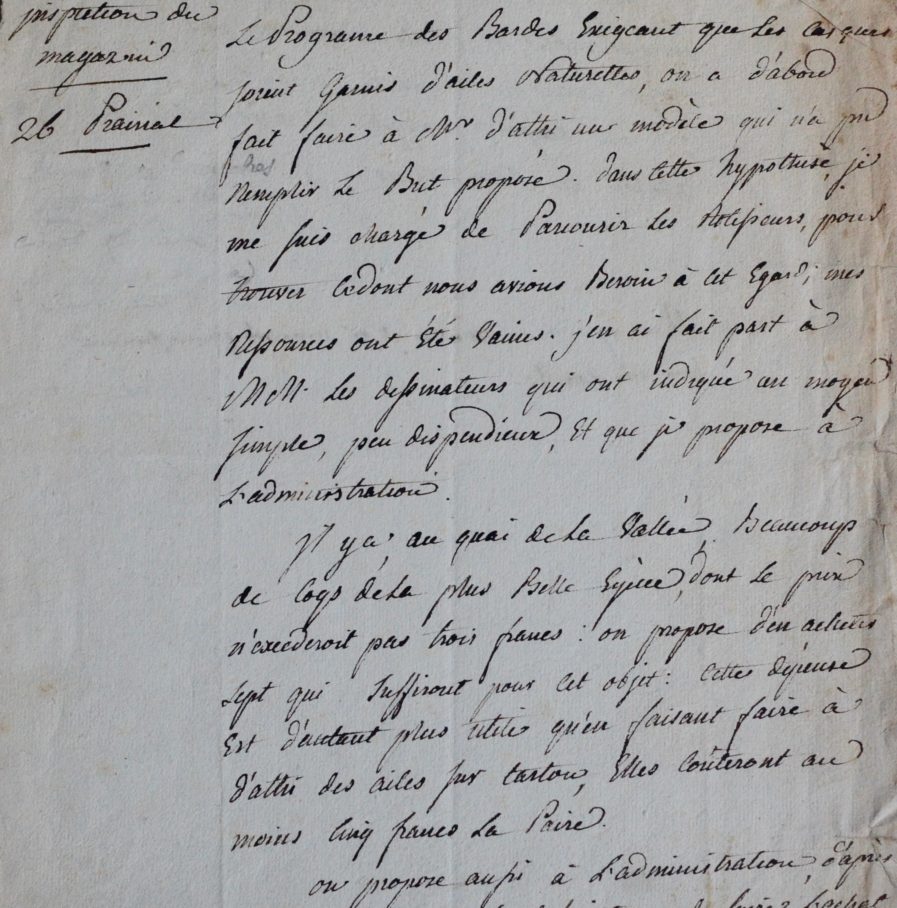 inspection du
magazin
26 Prairial
Le Programe des Bardes Exigeant que Les Casques
soient Garnis d'ailes Naturelles, on a d'abord
fait faire à Mr. d'athi un modèle qui n'a pu
Remplir Le But proposé. dans Cette hypothese, je
me suis chargé de Parcourir Les Rotisseurs, pour
trouver Ce dont nous avions Besoin à Cet Egard; mes
Ressources ont Été Vaines. j'en ai fait part à
MM. Les dessinateurs qui ont indiqué un moyen
simple, peu dispendieux, Et que je propose à
L'administration.
Il y a, au quai de La Vallée, Beaucoup
de Coqs de La plus Belle Espece, dont Le prix
n'excederoit pas trois francs : on propose d'en acheter
Sept qui Suffiront pour Cet objet : Cette dépense
Est d'autant plus utile qu'en faisant faire à
d'athi des ailes sur Carton, Elles Coûteront au
moins Cinq francs La Paire.
on propose aussi à L'administration, d'après